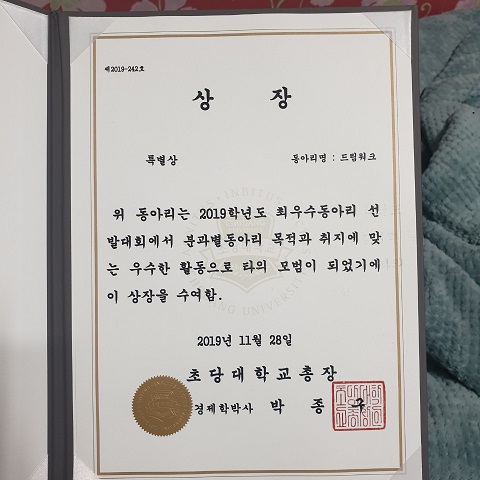 제2019-242호
상 장
특별상
동아리명 : 드림워크
위 동아리는 2019학년도 최우수동아리 선
발대회에서 분과별동아리 목적과 취지에 맞
는 우수한 활동으로 타의 모범이 되었기에
이 상장을 수여함.
2019년 11월 28일
초당대학교총장
경제학박사 박 종 구